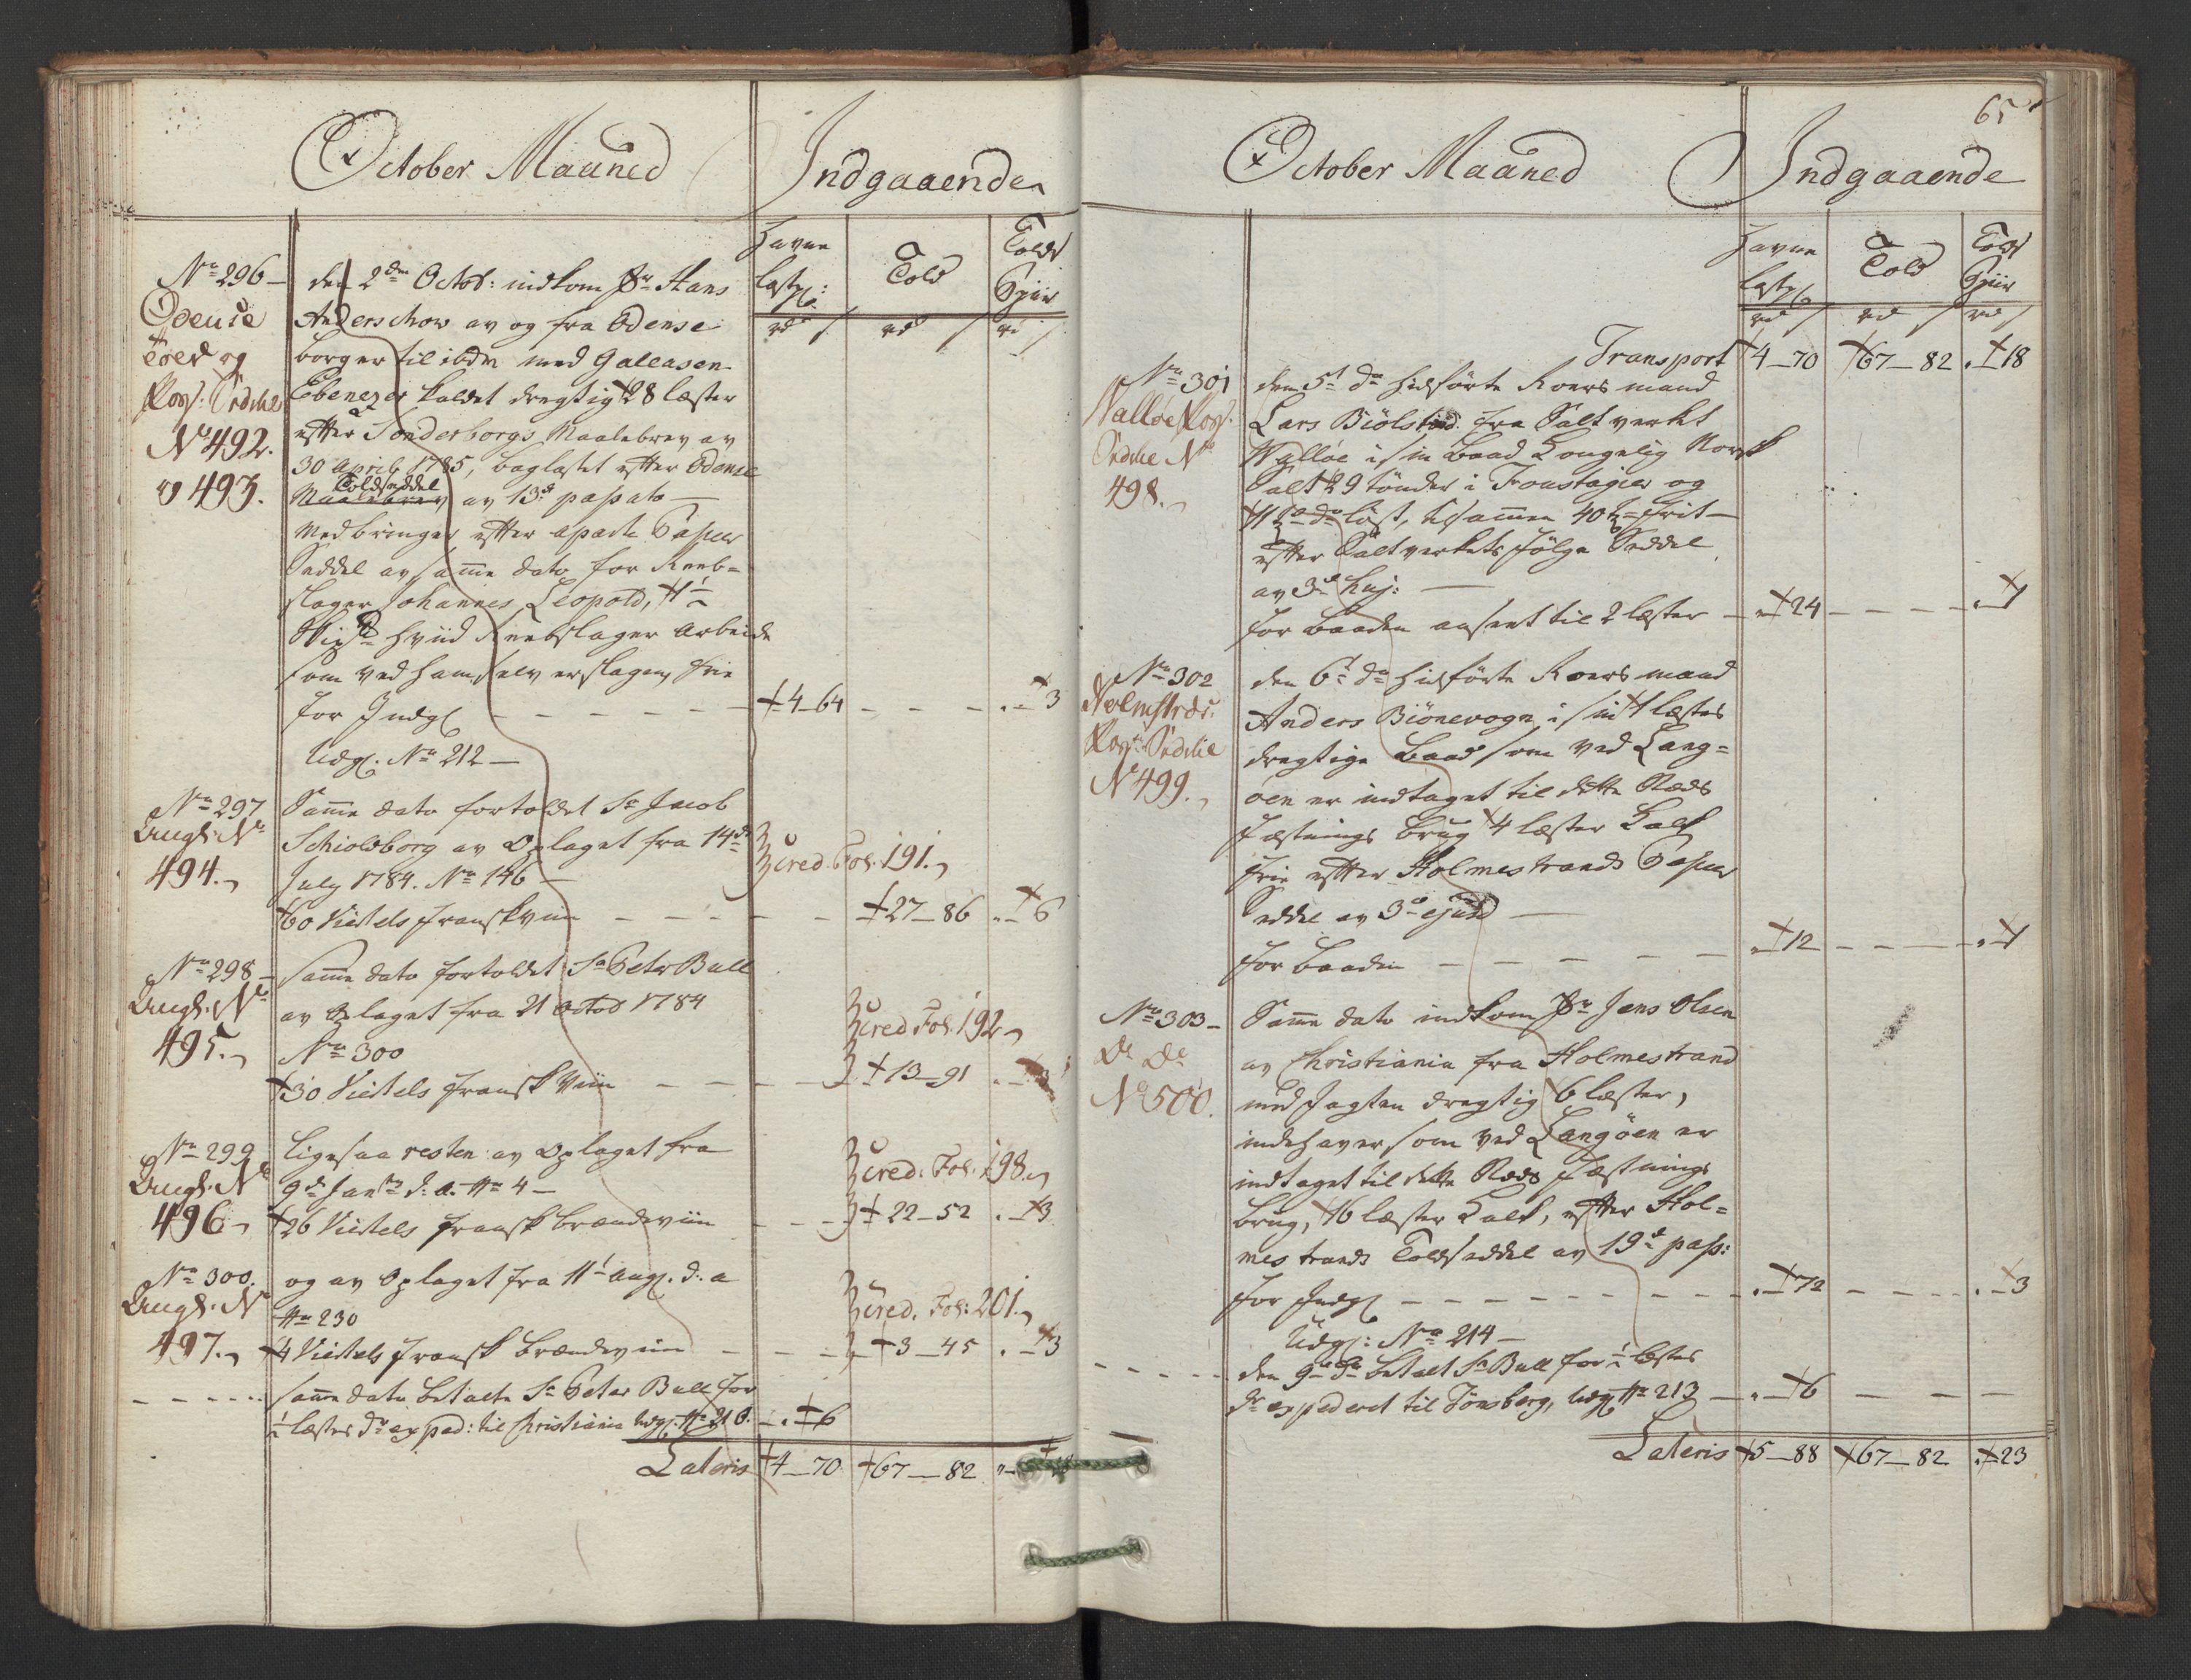 October Maaned
Indgaaende
Havne
lastp:
Told
Tolds
Spiir
rd / rd / rd /
No 296 –
Odense
Told og
Pass: Sedele
No 492.
o 493.
den 2den Octob: indkom Sr Hans
Anderschow av og fra Odense
borger til ibdm med Galleasen
Ebenezer kaldet dregtig 28 læster
efter Sønderborgs Maalebrev av
30 April 1785, baglastet efter Odense
Toldseddel
Maalebrev av 13de passato –
Medbringer efter aparte Passeer
Seddel av samme dato for Reeb=
slager Johannes Leopold, 1
hviid Reebslager Arbeide
som ved ham selv er slagen, frie
for Indg: – – – – 4–64 – – – . – 3
Udg: No 212 –
No 297
Angl: No
494.
Samme dato fortoldet Sr Jacob
Schioldborg av Oplaget fra 14de
July 1784. No 146 –
cred. Fol. 191.
60 Viertels Franskviin – – – – – 27–86 . – 6
No 298 –
Angl: No
495.
Samme dato fortoldet Sr Peter Bull
av Oplaget fra 21 Octob 1784
No 300
cred Fol. 192
30 Viertels Fransk Viin – – – – 13–91 . – 3
No 299
Angl: No
496
Ligesaa resten av Oplaget fra
9de Janr d: a. No 4 –
cred. Fol. 198.
26 Viertels Fransk brændeviin – – – 22–52 . – 3
No 300.
Angl: No
497.
og av Oplaget fra 11te Aug: d: a
No 230
cred. Fol: 201.
4 Viertels Fransk brændeviin – – – 3–45 . – 3
– – – – – Samme dato betalte Sr Peter Bull for
1 læster dr exped: til Christiania Udg: No 210. – . – 6
Lateris 4–70 67–82 " – 18
October Maaned
Indgaaende
65
Havne
lastp
Told
Told
Spiir
rd / rd / rd /
Transport 4–70 67–82 . 18
No 301
Valløe Pass:
Sedele No
498.
den 5te do hidførte Roersmand
Lars Biølstad fra Saltverket
Walløe i sin baad Kongelig Norsk
Salt 29 tønder i Foustagier og
11 do løst, tilsammen 40 tr frit –
efter Saltverkets følge Seddel
av 3de huj: –
for baaden anseet til 2 læster – " – 24 – – – – . – 1
No 302
Holmstrds:
Pass: Sedele
No 499.
den 6te do hidførte Roersmand
Anders Biønevogn i sin 1 læster
dregtige baad som ved Lang=
øen er indtaget til dette Stæds
Fæstnings brug 4 læster Kalk
frie efter Holmestrands Passeer
Seddel av 3de ejusd –
for baaden – – – – – " – 12 – – – – . – 1
No 303 –
Do Do
No 500.
Samme dato indkom Sr Jens Olsen
av Christiania fra Holmestrand
med Jagten dregtig 6 læster,
indehaver som ved Langøen er
indtaget til dette Stæds Fæstnings
brug, 16 læster Kalk, efter Hol=
mestrands Toldseddel av 19de pass:
for Indg: – – – – – – – . – 72 – – – – . – 3
Udg: No 214 –
– – – – den 9de do betalt Sr Bull for 1 læster
dr expederet til Tønsberg, Udg: No 213 – " – 6 – – –
Lateris 5–88 67–82 . – 23